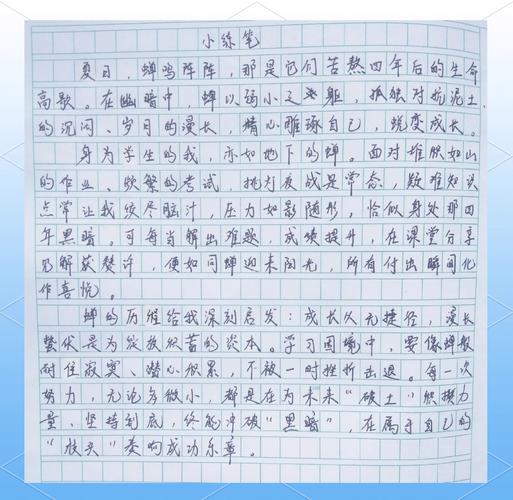 小练笔
夏日，蝉鸣阵阵，那是它们苦熬四年后的生命
高歌。在幽暗中，蝉以弱小之躯，孤独对抗泥土
的沉闷、岁月的漫长，精心雕琢自己，蜕变成长。
身为学生的我，亦如地下的蝉。面对堆积如山
的作业、频繁的考试，挑灯夜战是常态，疑难知识
点常让我绞尽脑汁，压力如影随形，恰似身处那四
年黑暗。可每当解出难题，成绩提升，在课堂分享
见解获赞许，便如同蝉迎来阳光，所有付出瞬间化
作喜悦。
蝉的历程给我深刻启发：成长从无捷径，漫长
蛰伏是为绽放积蓄的资本。学习困境中，要像蝉般
耐住寂寞、潜心积累，不被一时挫折击退。每一次
努力，无论多微小，都是在为未来“破土”积攒力
量、坚持到底，终能冲破“黑暗”，在属于自己的
“枝头”奏响成功乐章。